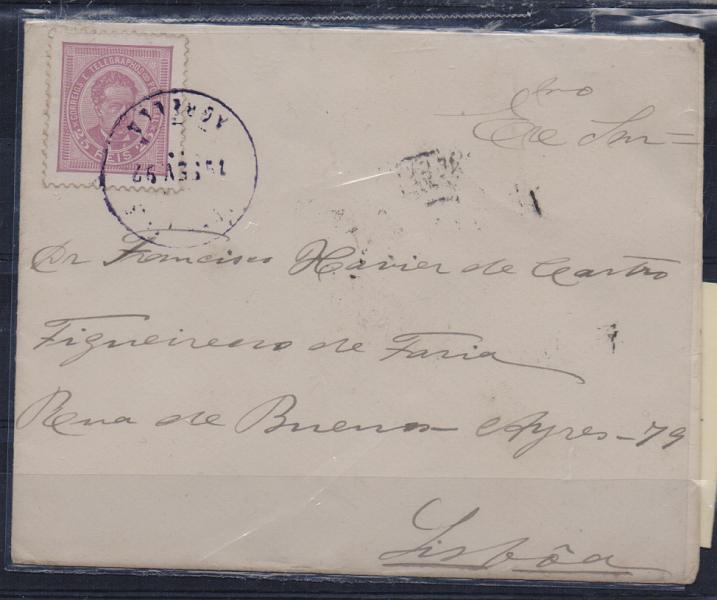 CORREIOS E TELEGRAPHOS
25 REIS 25
Exmo
Sur
Dr Francisco Xavier de Castro
Figueiredo de Faria
Rua de Buenos Ayres-79
Lisbôa